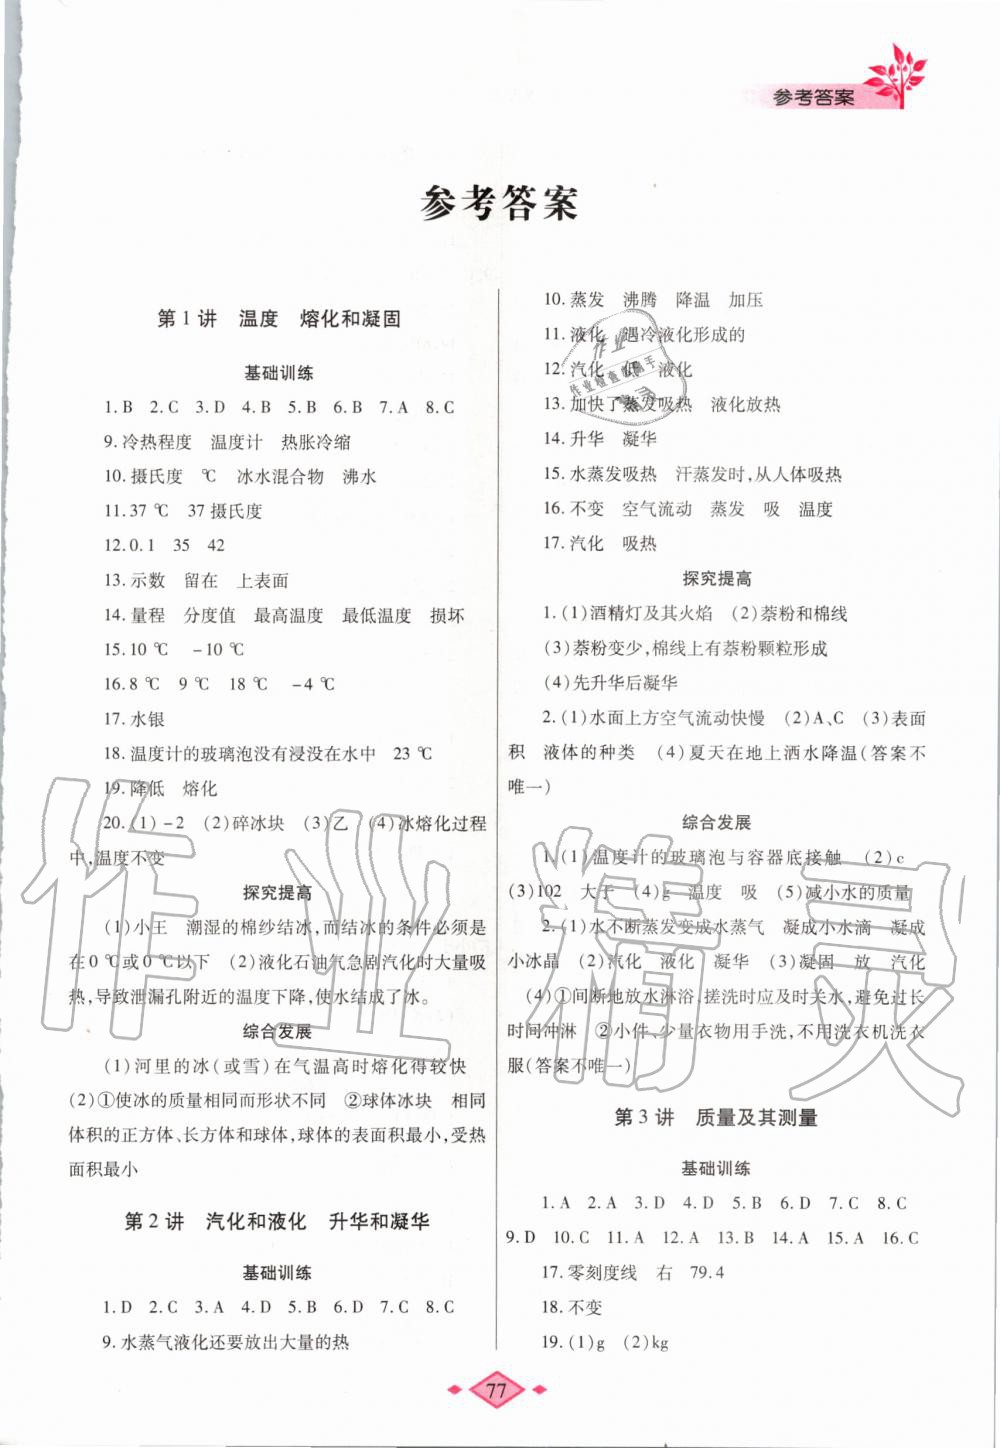 参考答案
参考答案
第1讲 温度 熔化和凝固
基础训练
1.B 2.C 3.D 4.B 5.B 6.B 7.A 8.C
9.冷热程度 温度计 热胀冷缩
10.摄氏度 ℃ 冰水混合物 沸水
11.37 ℃ 37 摄氏度
12.0.1 35 42
13.示数 留在 上表面
14.量程 分度值 最高温度 最低温度 损坏
15.10 ℃ －10 ℃
16.8 ℃ 9 ℃ 18 ℃ －4 ℃
17.水银
18.温度计的玻璃泡没有浸没在水中 23 ℃
19.降低 熔化
20.(1)－2 (2)碎冰块 (3)乙 (4)冰熔化过程
中,温度不变
探究提高
(1)小王 潮湿的棉纱结冰,而结冰的条件必须是
在0 ℃或0 ℃以下 (2)液化石油气急剧汽化时大量吸
热,导致泄漏孔附近的温度下降,使水结成了冰。
综合发展
(1)河里的冰(或雪)在气温高时熔化得较快
(2)①使冰的质量相同而形状不同 ②球体冰块 相同
体积的正方体、长方体和球体,球体的表面积最小,受热
面积最小
第2讲 汽化和液化 升华和凝华
基础训练
1.D 2.C 3.A 4.D 5.B 6.D 7.C 8.C
9.水蒸气液化还要放出大量的热
10.蒸发 沸腾 降温 加压
11.液化 遇冷液化形成的
12.汽化 低 液化
13.加快了蒸发吸热 液化放热
14.升华 凝华
15.水蒸发吸热 汗蒸发时,从人体吸热
16.不变 空气流动 蒸发 吸 温度
17.汽化 吸热
探究提高
1.(1)酒精灯及其火焰 (2)萘粉和棉线
(3)萘粉变少,棉线上有萘粉颗粒形成
(4)先升华后凝华
2.(1)水面上方空气流动快慢 (2)A、C (3)表面
积 液体的种类 (4)夏天在地上洒水降温(答案不
唯一)
综合发展
1.(1)温度计的玻璃泡与容器底接触 (2)c
(3)102 大于 (4)g 温度 吸 (5)减小水的质量
2.(1)水不断蒸发变成水蒸气 凝成小水滴 凝成
小冰晶 (2)汽化 液化 凝华 (3)凝固 放 汽化
(4)①间断地放水淋浴,搓洗时应及时关水,避免过长
时间冲淋 ②小件、少量衣物用手洗,不用洗衣机洗衣
服(答案不唯一)
第3讲 质量及其测量
基础训练
1.A 2.A 3.D 4.D 5.D 6.D 7.C 8.C
9.D 10.C 11.A 12.A 13.B 14.A 15.A 16.C
17.零刻度线 右 79.4
18.不变
19.(1)g (2)kg
77
作业精灵
作业
作业检查小助手